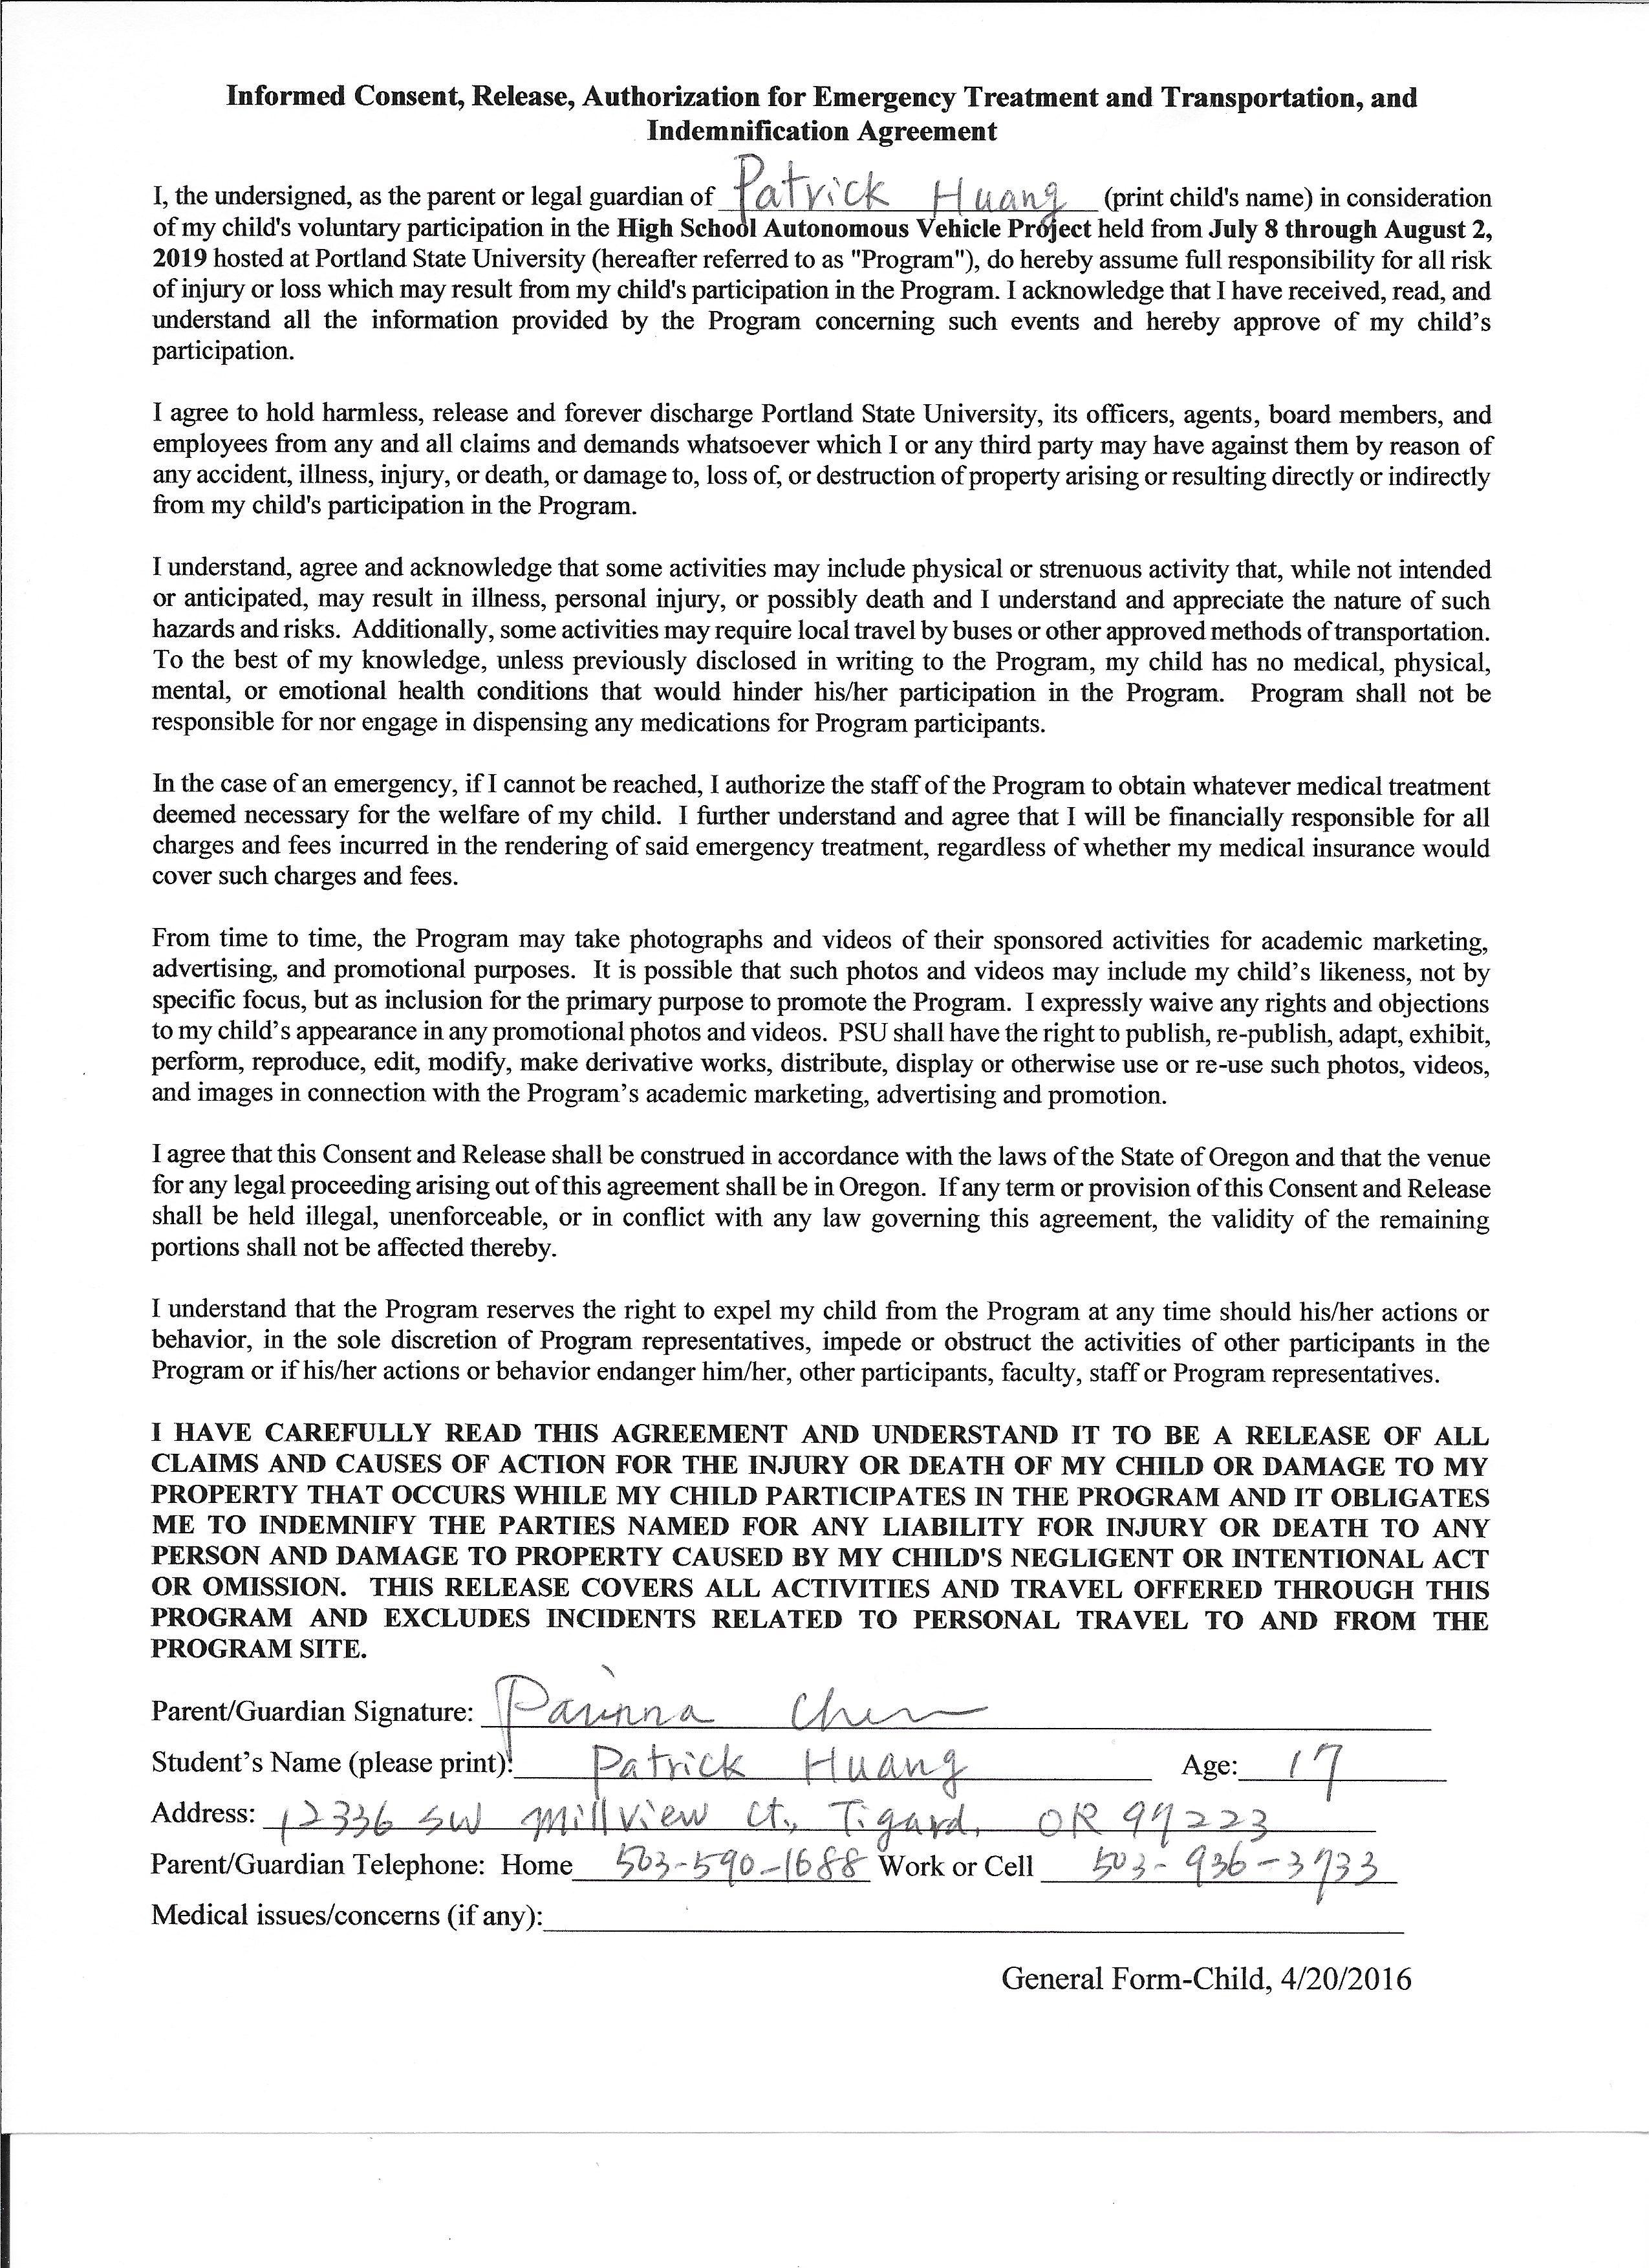 Informed Consent, Release, Authorization for Emergency Treatment and Transportation, and
Indemnification Agreement
I, the undersigned, as the parent or legal guardian of Patrick Huang (print child's name) in consideration
of my child's voluntary participation in the High School Autonomous Vehicle Project held from July 8 through August 2,
2019 hosted at Portland State University (hereafter referred to as "Program"), do hereby assume full responsibility for all risk
of injury or loss which may result from my child's participation in the Program. I acknowledge that I have received, read, and
understand all the information provided by the Program concerning such events and hereby approve of my child’s
participation.
I agree to hold harmless, release and forever discharge Portland State University, its officers, agents, board members, and
employees from any and all claims and demands whatsoever which I or any third party may have against them by reason of
any accident, illness, injury, or death, or damage to, loss of, or destruction of property arising or resulting directly or indirectly
from my child's participation in the Program.
I understand, agree and acknowledge that some activities may include physical or strenuous activity that, while not intended
or anticipated, may result in illness, personal injury, or possibly death and I understand and appreciate the nature of such
hazards and risks. Additionally, some activities may require local travel by buses or other approved methods of transportation.
To the best of my knowledge, unless previously disclosed in writing to the Program, my child has no medical, physical,
mental, or emotional health conditions that would hinder his/her participation in the Program. Program shall not be
responsible for nor engage in dispensing any medications for Program participants.
In the case of an emergency, if I cannot be reached, I authorize the staff of the Program to obtain whatever medical treatment
deemed necessary for the welfare of my child. I further understand and agree that I will be financially responsible for all
charges and fees incurred in the rendering of said emergency treatment, regardless of whether my medical insurance would
cover such charges and fees.
From time to time, the Program may take photographs and videos of their sponsored activities for academic marketing,
advertising, and promotional purposes. It is possible that such photos and videos may include my child’s likeness, not by
specific focus, but as inclusion for the primary purpose to promote the Program. I expressly waive any rights and objections
to my child’s appearance in any promotional photos and videos. PSU shall have the right to publish, re-publish, adapt, exhibit,
perform, reproduce, edit, modify, make derivative works, distribute, display or otherwise use or re-use such photos, videos,
and images in connection with the Program’s academic marketing, advertising and promotion.
I agree that this Consent and Release shall be construed in accordance with the laws of the State of Oregon and that the venue
for any legal proceeding arising out of this agreement shall be in Oregon. If any term or provision of this Consent and Release
shall be held illegal, unenforceable, or in conflict with any law governing this agreement, the validity of the remaining
portions shall not be affected thereby.
I understand that the Program reserves the right to expel my child from the Program at any time should his/her actions or
behavior, in the sole discretion of Program representatives, impede or obstruct the activities of other participants in the
Program or if his/her actions or behavior endanger him/her, other participants, faculty, staff or Program representatives.
I HAVE CAREFULLY READ THIS AGREEMENT AND UNDERSTAND IT TO BE A RELEASE OF ALL
CLAIMS AND CAUSES OF ACTION FOR THE INJURY OR DEATH OF MY CHILD OR DAMAGE TO MY
PROPERTY THAT OCCURS WHILE MY CHILD PARTICIPATES IN THE PROGRAM AND IT OBLIGATES
ME TO INDEMNIFY THE PARTIES NAMED FOR ANY LIABILITY FOR INJURY OR DEATH TO ANY
PERSON AND DAMAGE TO PROPERTY CAUSED BY MY CHILD'S NEGLIGENT OR INTENTIONAL ACT
OR OMISSION. THIS RELEASE COVERS ALL ACTIVITIES AND TRAVEL OFFERED THROUGH THIS
PROGRAM AND EXCLUDES INCIDENTS RELATED TO PERSONAL TRAVEL TO AND FROM THE
PROGRAM SITE.
Parent/Guardian Signature: Chen
Student’s Name (please print): Patrick Huang Age: 17
Address: 12336 SW Millview Ct., Tigard, OR 97223
Parent/Guardian Telephone: Home 503-590-1688 Work or Cell 503-936-3733
Medical issues/concerns (if any):
General Form-Child, 4/20/2016